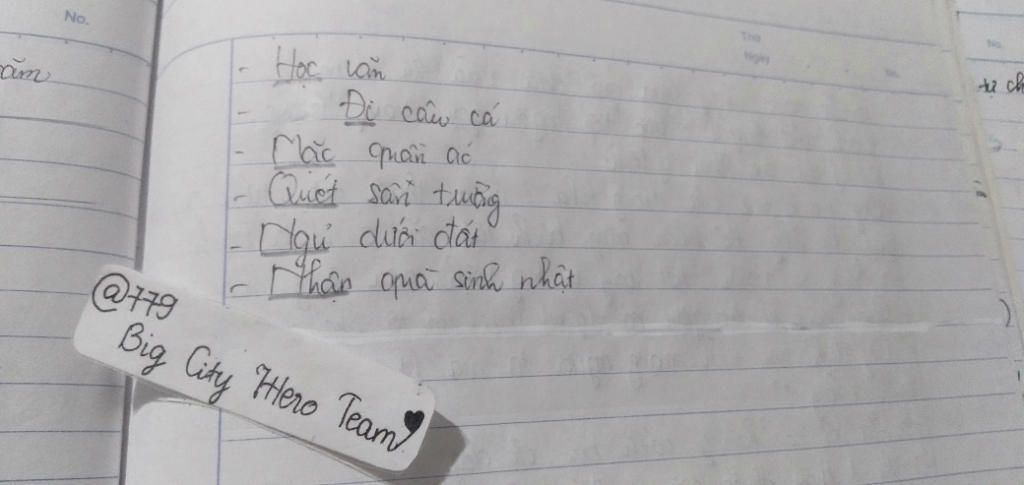 No.
ăm
Thứ
Ngày
No.
- Học văn
- Đi câu cá
- Mặc quần áo
- Quét sân trường
- Ngủ dưới đất
- Nhận quà sinh nhật
@779
Big City Hero Team♥
No.
tự ch